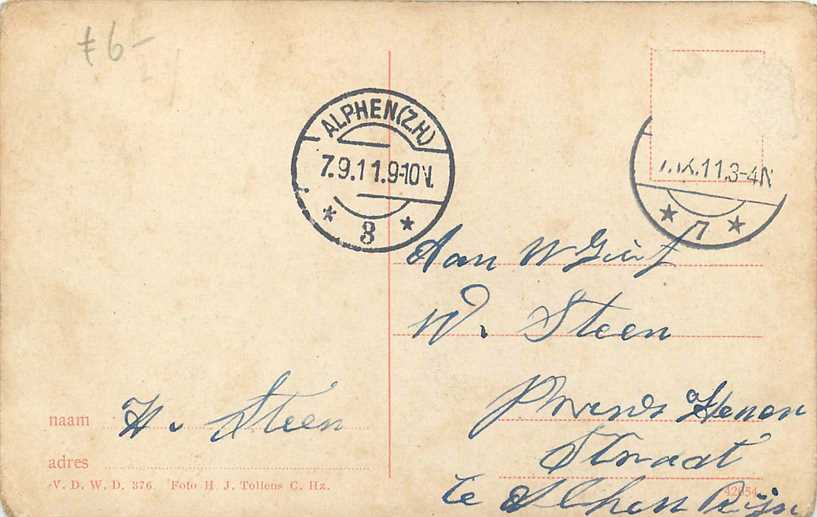 ƒ6-
ALPHEN(ZH)
7.9.11.9-10V.
* 3 *
11.3-4N
* 7 *
Aan W
W. Steen
Prins Henen
Straat
te Alphen Rijn
naam W. Steen
adres
V. D. W. D. 376. Foto H. J. Tollens C. Hz.